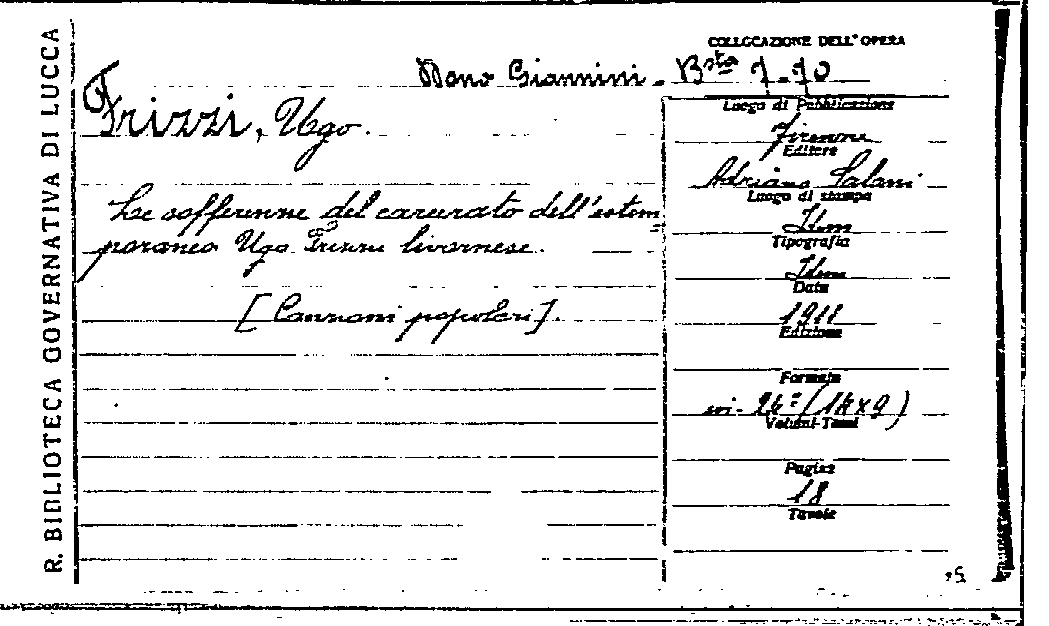 R. BIBLIOTECA GOVERNATIVA DI LUCCA
COLLOCAZIONE DELL'OPERA
Dono Giannini - Bsta 7-70
Frizzi, Ugo.
Le sofferenze del carcerato dell'estem
poraneo Ugo Frizzi livornese.
[Canzoni popolari].
Luogo di Pubblicazione
Firenze
Editore
Adriano Salani
Luogo di stampa
Idem
Tipografia
Idem
Data
1911
Edizione
Formato
in-24° (14x9)
Volumi-Tomi
Pagine
18
Tavole